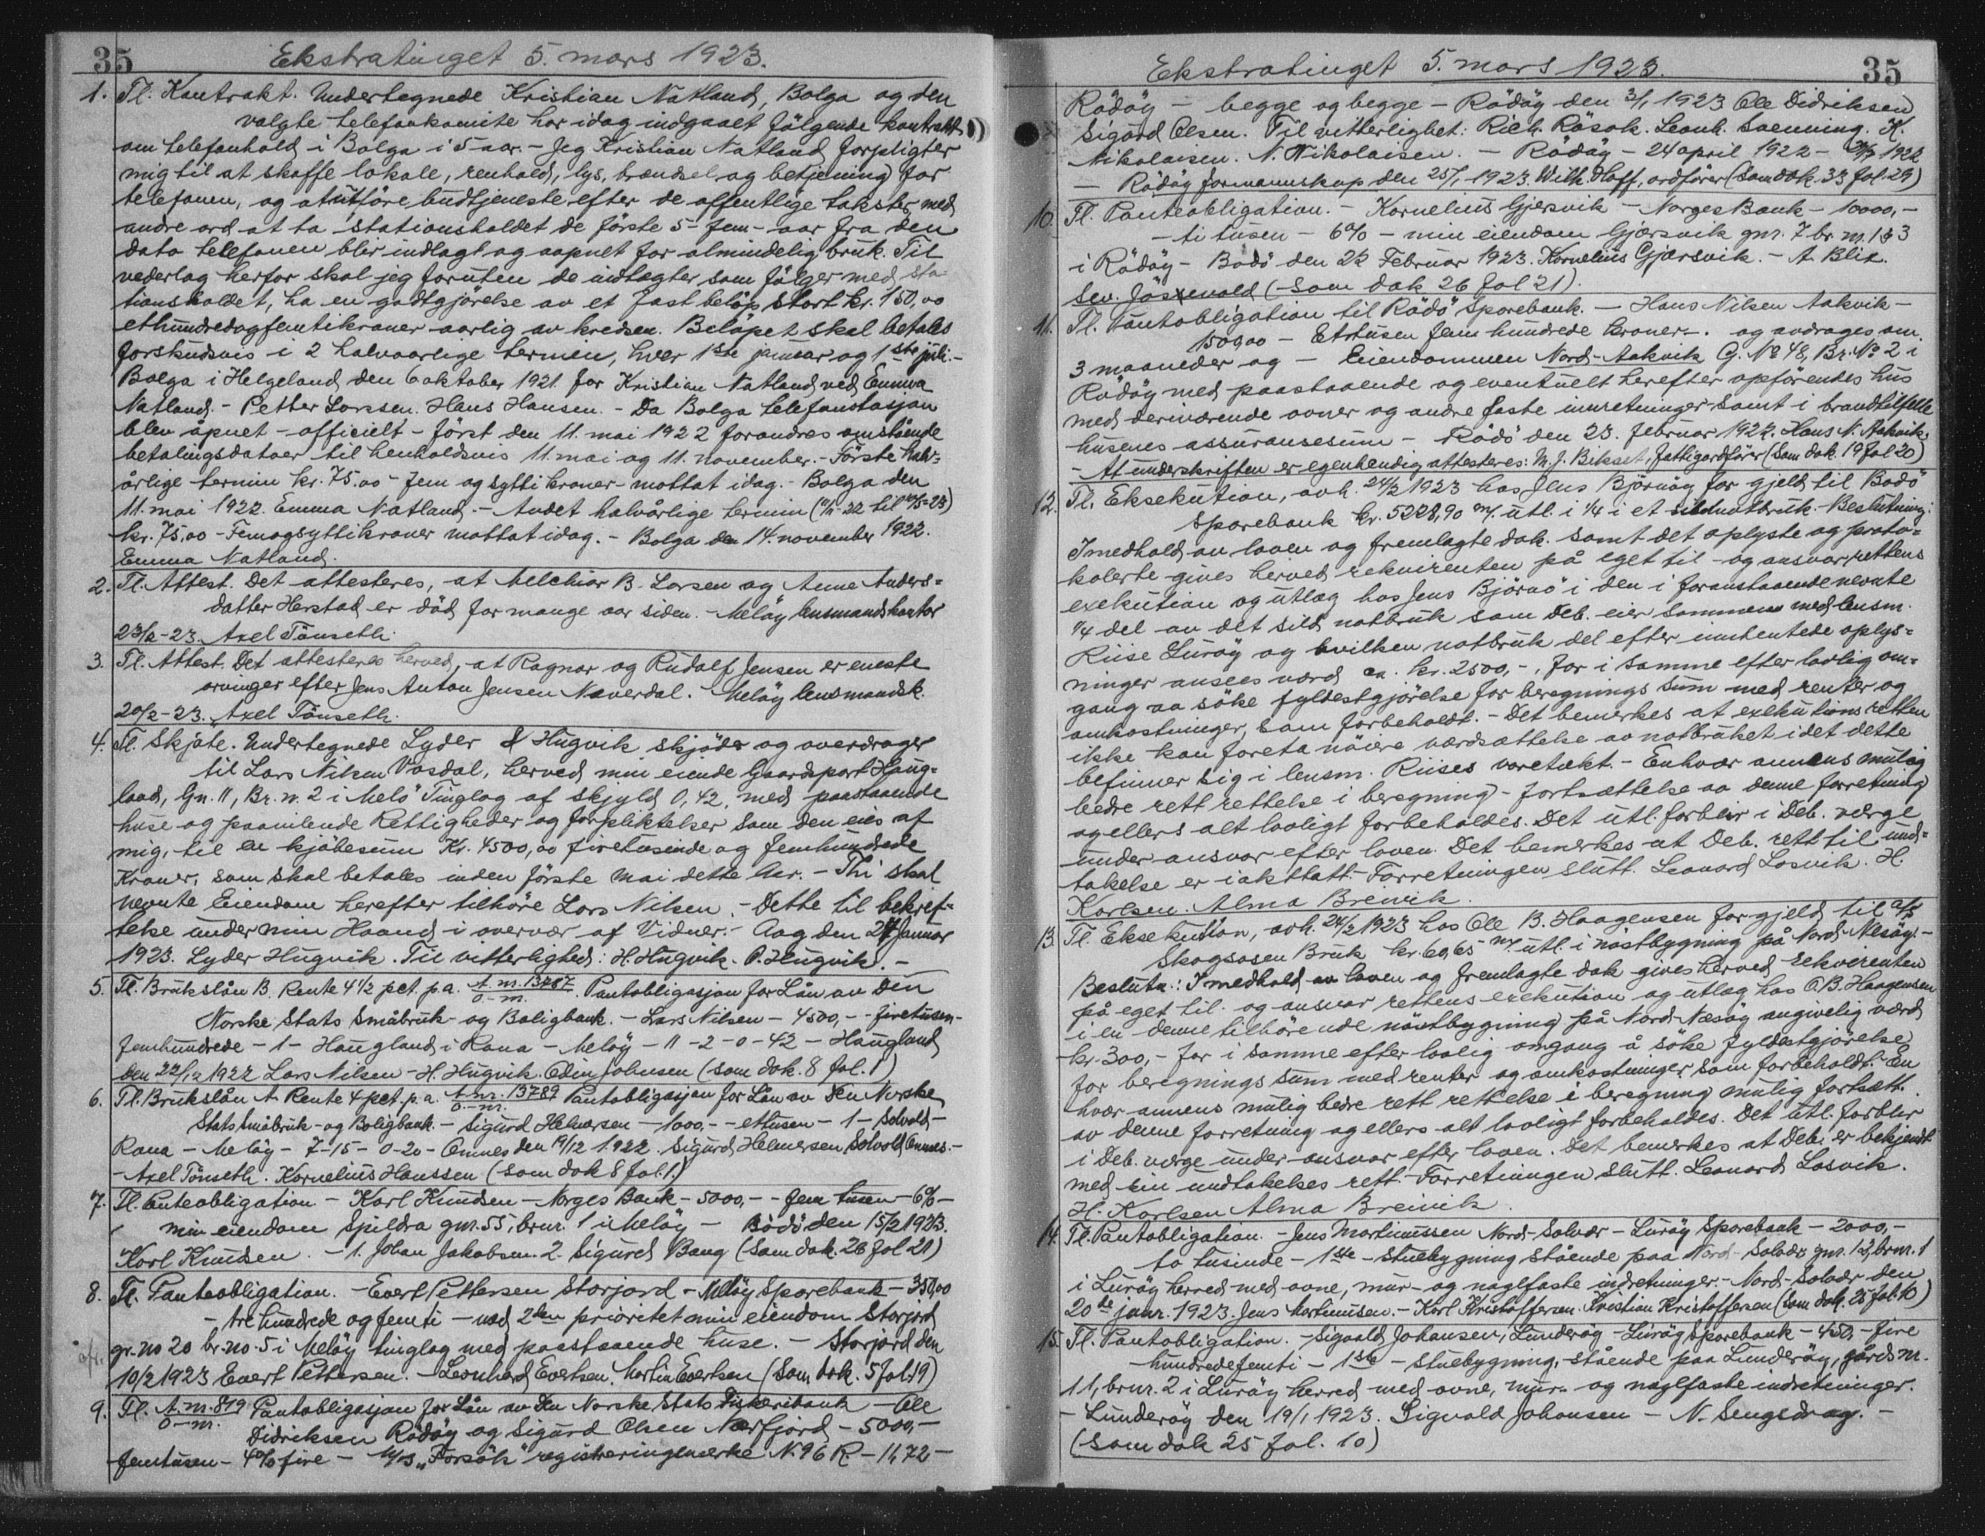 35
Ekstratinget 5. mars 1923.
1. Tl. Kontrakt. Undertegnede Kristian Natland, Bolga og den
valgte telefonkomite har idag indgaaet følgende kontrakt
om telefonhold i Bolga i 5 aar. - Jeg Kristian Natland forpligter
mig til at skaffe lokale, renhold, lys, brændsel og betjening for
telefonen, og at utføre budtjeneste efter de offentlige takster, med
andre ord at ta stationsholdet de første 5 - fem - aar fra den
dato telefonen blir indlagt og aapnet for almindelig bruk. Til
vederlag herfor skal jeg foruten de indtægter som følger med sta-
tionsholdet, ha en godtgjørelse av et fast beløp stort kr. 150,00
ethundredogfemtikroner aarlig av kredsen. Beløpet skal betales
forskudsvis i 2 halvaarlige termin, hver 1ste januar og 1ste juli. -
Bolga i Helgeland den 6 oktober 1921. for Kristian Natland ved Emma
Natland. - Petter Larssen. Hans Hansen. - Da Bolga telefonstasjon
blev åpnet - officielt - først den 11. mai 1922 forandres omstående
betalingsdatoer til henholdsvis 11. mai og 11. november. - Første halv-
årlige termin kr. 75.00 - fem og sytti kroner - mottat idag. - Bolga den
11. mai 1922. Emma Natland. - Andet halvårlige termin (11/11-22 til 11/5-23)
kr. 75,00 - Femogsyttikroner mottat idag. - Bolga den 14. november 1922.
Emma Natland.
2. Tl. Attest. Det attesteres, at Melchior B. Larsen og Anne Anders-
datter Herstad er död for mange aar siden. - Meløy lensmandskontor
23/2-23. Axel Tönseth.
3. Tl. Attest. Det attesteres herved, at Ragnar og Rudolf Jensen er eneste
arvinger efter Jens Anton Jensen Næverdal. Meløy lensmandsk.
20/2-23. Axel Tönseth.
4. Tl. Skjøte. Undertegnede Lyder Hugvik skjøder og overdrager
til Lars Nilsen Vasdal, herved min eiende Gaardspart Haug-
land, Gn. 11, Br. n. 2 i Melö Tinglag af skjyld 0,42, med paastaaende
huse og paavilende Rettigheder og forpliktelser som den eies af
mig, til en kjøbesum Kr. 4500,00 firetusinde og femhundrede
Kroner, som skal betales inden første Mai dette Aar. - Thi skal
nevnte Eiendom herefter tilhöre Lars Nilsen. - Dette til bekref-
telse under min Haand i overvær af Vidner. - Aag den 24 Januar
1923. Lyder Hugvik. Til vitterlighed: H. Hugvik. O. Hugvik. -
5. Tl. Brukslån B. Rente 4 1/2 pct. p.a. A. nr. 13787 O-m. Pantobligasjon for Lån av Den
Norske Stats Småbruk- og Boligbank. - Lars Nilsen - 4500,- - firetusen-
femhundrede - 1 - Haugland i Rana - Meløy - 11 - 2 - 0 - 42 - Haugland
den 22/12 1922 Lars Nilsen - H. Hugvik. Odin Johnsen (som dok. 8 fol. 1)
6. Tl. Brukslån A. Rente 4 pct. p.a. A. nr. 13789 O-m. Pantobligasjon for Lån av Den Norske
Stats Småbruk- og Boligbank. - Sigurd Helmersen - 1000,- - ettusen - 1 - Solvold -
Rana - Meløy - 7-15 - 0-20 - Omnes den 19/12 1922. Sigurd Helmersen Solvold Omnes. -
- Axel Tönseth. Kornelius Hanssen (som dok 8 fol. 1.)
7. Tl. Panteobligation - Karl Knudsen - Norges Bank - 5000,- - fem tusen - 6% -
min eiendom Spildra gnr. 55, brnr. 1 i Meløy - Bödö den 15/2 1923.
Karl Knudsen. - 1. Johan Jakobsen. 2. Sigurd Bang (som dok. 26 fol 21)
8. Tl. Panteobligation. - Evert Pettersen Storjord - Meløy Sparebank - 350,00
- tre hundrede og femti - med 2den prioritet min eiendom Storjord
gr. no 20 br. no. 5 i Meløy tinglag med paastaaende huse. - Storjord den
10/2 1923 Evert Pettersen. - Leonhard Evertsen. Martin Evertsen (Som dok. 5 fol. 19)
9. Tl. A. nr. 819 O-m. Pantobligasjon for Lån av Den Norske Stats Fiskeribank - Ole
Didriksen Rødøy og Sigurd Olsen Nærfjord - 5000,-
femtusen - 4% fire - M/S "Forsök" registreringsmerke N. 96 R - 11,72 -
35
Ekstratinget 5. mars 1923.
Rödöy - begge og begge - Rödöy den 3/1 1923 Ole Didriksen
Sigurd Olsen. Til vitterlighet: Rich. Røsok. Leonh. Soenning. K.
Nikolaisen. N. Nikolaisen. - Rödöy - 24 april 1922 - 1922
- Rödöy formannskap den 25/1 1923. Wilh. Hoff, ordfører (Som dok. 33 fol. 29)
10. Tl. Panteobligation. - Kornelius Gjersvik - Norges Bank - 10000,-
- ti tusen - 6% - min eiendom Gjærsvik gnr. 7 br. nr. 1 & 3
i Rödöy - Bodö den 22 Februar 1923. Kornelius Gjærsvik. - A. Blix.
Sev. Jösevold (- som dok 26 fol 21).
11. Tl. Pantobligation til Rödö Sparebank. - Hans Nilsen Aakvik -
1500,00 - Ettusen fem hundrede kroner -. og avdrages om
3 maaneder og - Eiendommen Nord-Aakvik G. No 48, Br. No 2 i
Rödöy med paastaaende og eventuelt herefter opförendes hus
med derværende ovner og andre faste innretninger samt i brandtilfelle
husenes assuransesum - Rödö den 23. februar 1922. Hans N. Aakvik.
- At underskriften er egenhendig attesteres: M. J. Bekset, fattigordfører (Som dok. 19 fol 20)
12. Tl. Eksekution, avh. 24/2 1923 hos Jens Björnöy for gjeld til Bodö
Sparebank kr. 5228,90 m/. utl. i 1/4 i et sildnotbruk. Beslutning:
I medhold av loven og fremlagte dok. samt det oplyste og proto-
kolerte gives herved rekvirenten på eget til - og ansvar rettens
exekution og utlæg hos Jens Björnö i den i foranstaaende nevnte
1/4 del av det sild notbruk som Deb. eier sammen med lensm.
Riise Luröy og hvilken notbruk del efter innhentede oplys-
ninger ansees værd ca. kr. 2500,-, for i samme efter lovlig om-
gang aa söke fyldestgjörelse for beregnings sum med renter og
omkostninger, som forbeholdt. - Det bemerkes at exekutionsretten
ikke kan foreta nöiere værdsættelse av notbruket idet dette
befinner sig i lensm. Riises varetækt. - Enhver annens mulig
bedre rett rettelse i beregning - fortsættelse av denne forretning
og ellers alt lovligt forbeholdes. Det utl. forblir i Deb. værge
under ansvar efter loven. Det bemerkes at Deb. rett til und-
takelse er iakttatt. - Forretningen slutt. Leonard Losvik. H.
Karlsen. Alma Breivik.
13. Tl. Eksekution, avh. 24/2 1923 hos Ole B. Haagensen for gjeld til A/S
Skogsosen Bruk kr. 60,65 m/. utl. i nöstbygning på Nord-Nesöy. -
Beslutn.: I medhold av loven og fremlagte dok gives herved rekvirenten
på eget til. og ansvar rettens exekution og utlæg hos O. B. Haagensen
i en denne tilhörende nöstbygning på Nord-Næsöy angivelig værd
kr. 300,- for i samme efter lovlig omgang å söke fyldestgjörelse
for beregnings sum med renter og omkostninger som forbeholdt. En
hver annens mulig bedre rett rettelse i beregning mulig fortsætt.
av denne forretning og ellers alt lovligt forbeholdes. Det utl. forblir
i Deb. værge under ansvar efter loven. Det bemerkes at Deb. er bekjendt
med sin undtakelses rett. - Forretningen slutt. Leonard Losvik.
H. Karlsen Alma Breivik.
14. Tl. Pantobligation. - Jens Martinussen Nord-Solvær - Luröy Sparebank - 2000,-
to tusinde - 1ste - stuebygning stående paa Nord-Solvær gnr. 13, brnr. 1
i Luröy herred med ovne, mur- og naglfaste indretninger. - Nord-Solvær den
20de janr. 1923. Jens Martinusen. - Karl Kristoffersen. Kristian Kristoffersen (Som dok. 25 fol. 10)
15. Tl. Pantobligation. - Sigvald Johansen, Lunderöy - Luröy Sparebank - 450,- fire
hundredefemti - 1ste - stuebygning, stående paa Lunderöy, gårds nr.
11, brnr. 2 i Luröy herred med ovne, mur- og naglfaste indretninger.
- Lunderöy den 19/1 1923. Sigvald Johansen - N. Sengsdrag. -
(Som dok 25 fol. 10)